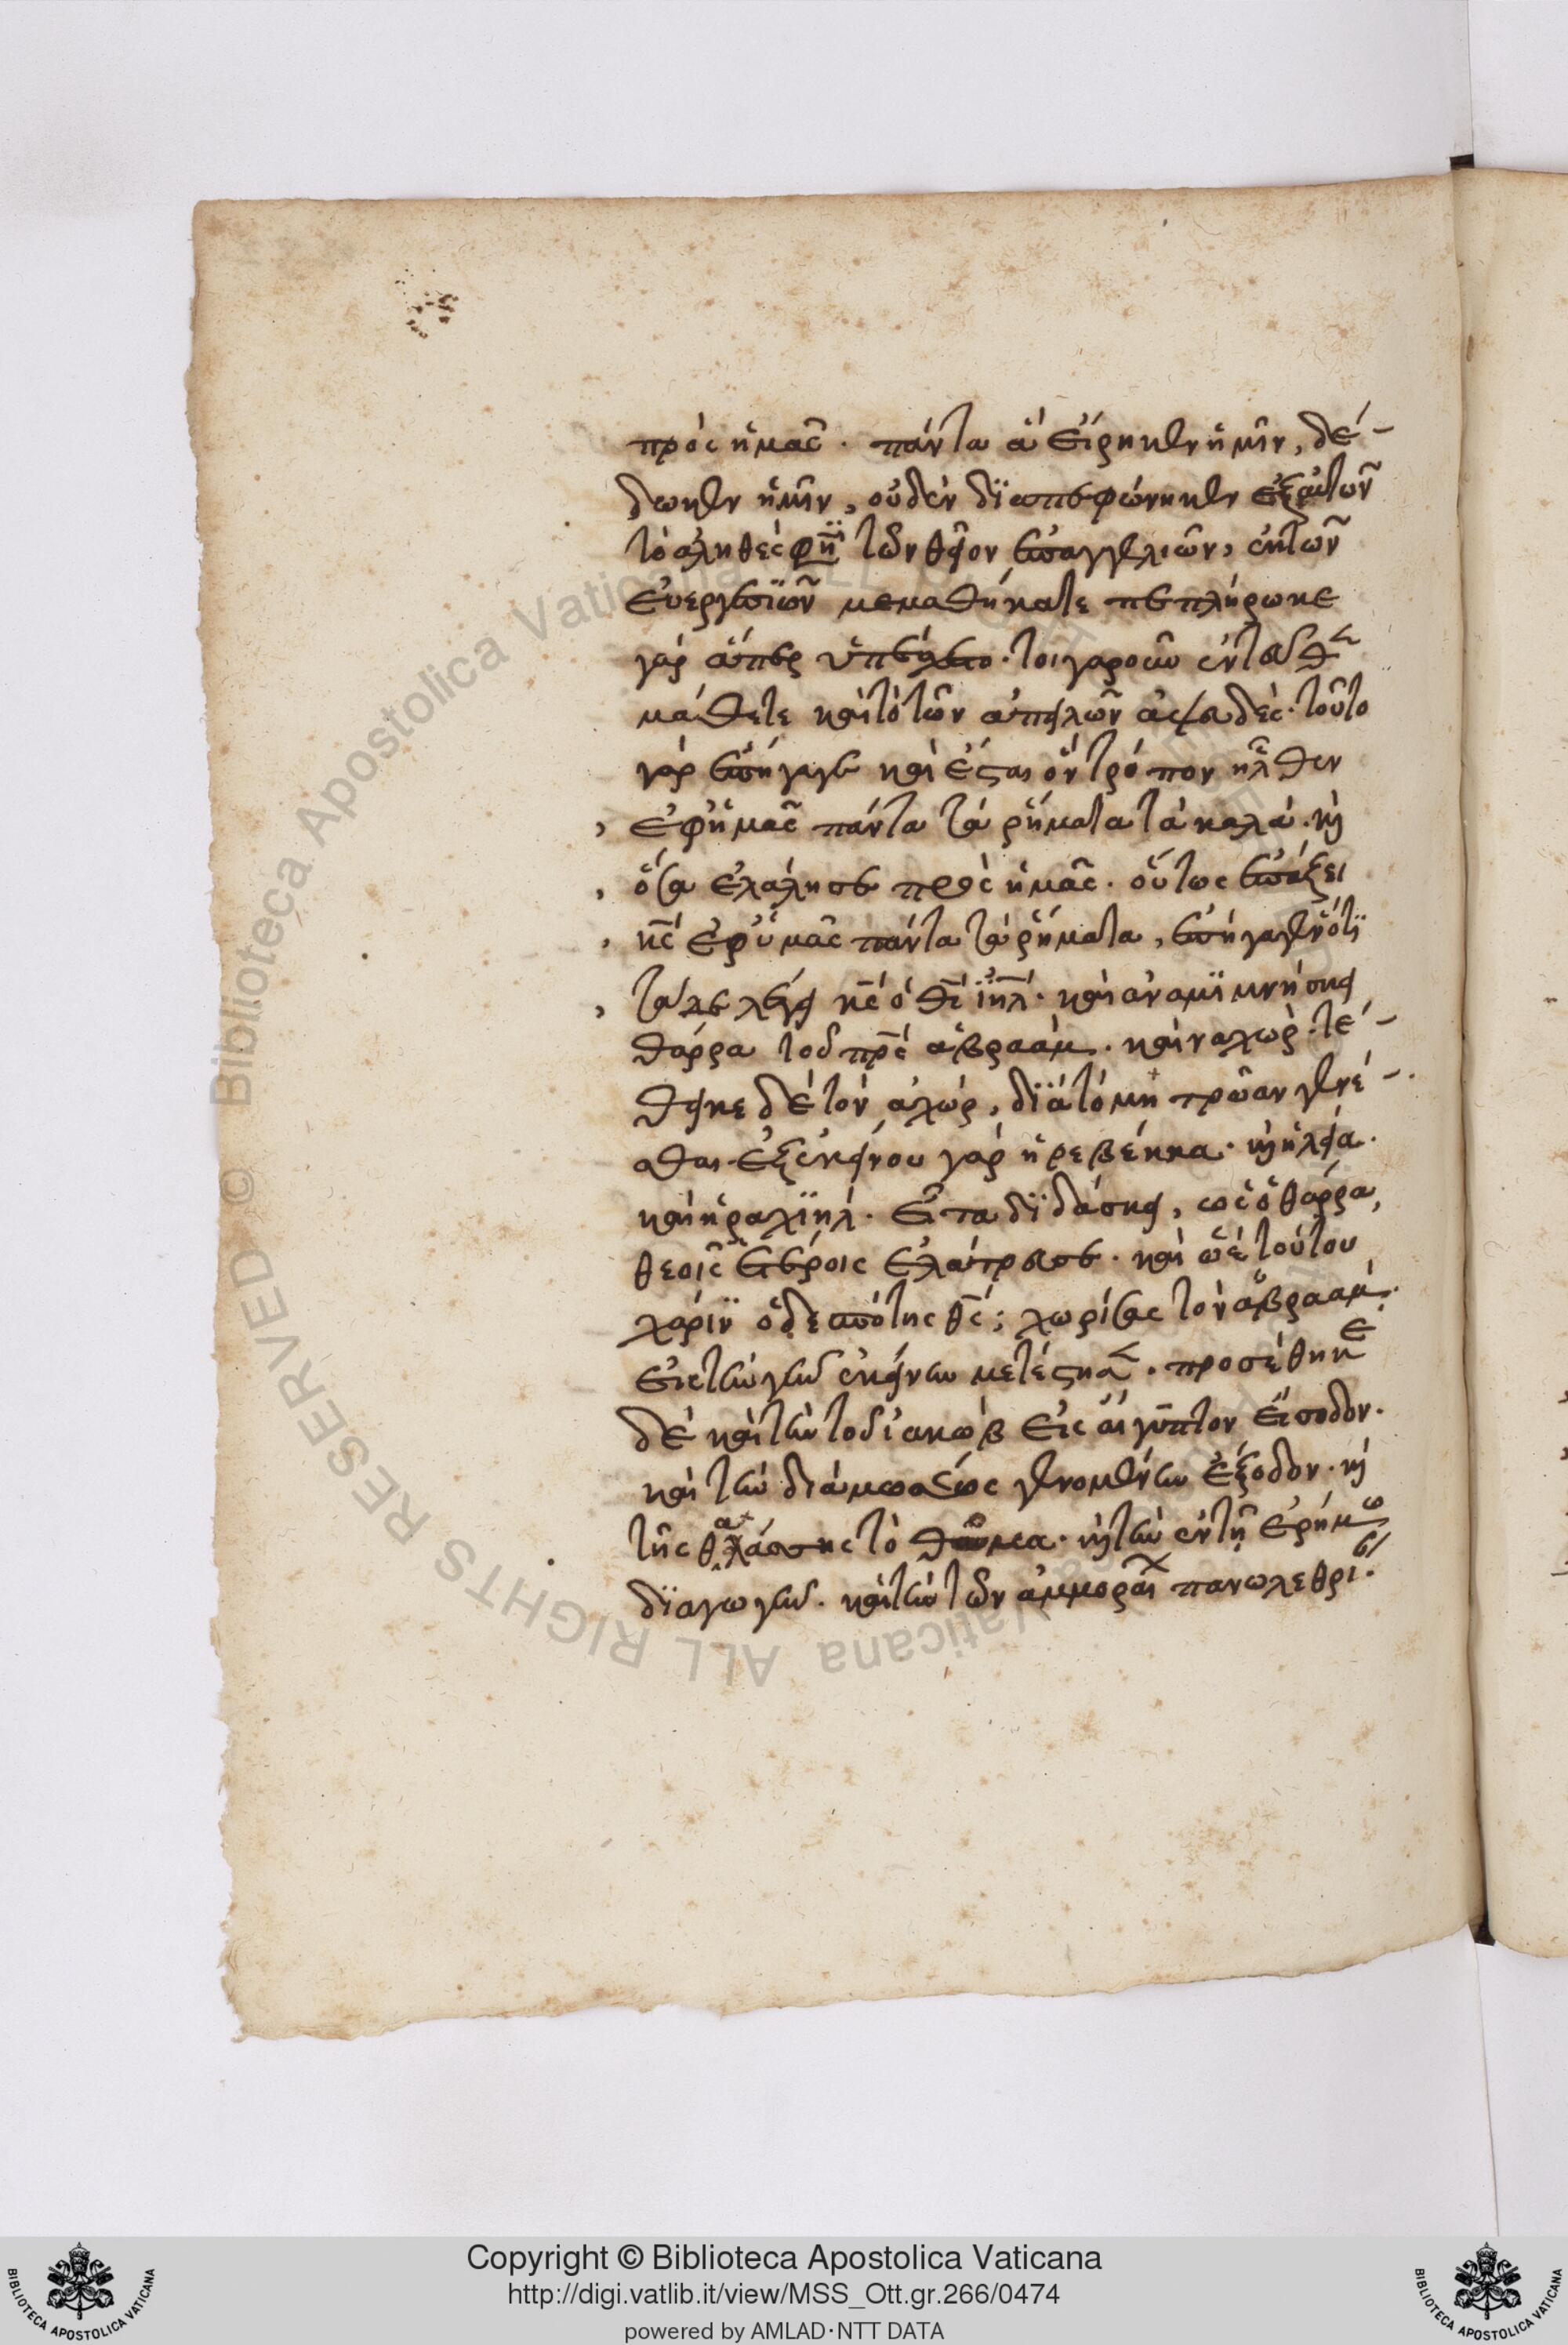 πρὸς ἡμᾶς. πάντα ἃ εἴρηκεν ἡμῖν, δέ-
δωκεν ἡμῖν, οὐδὲν διαπεφώνηκεν ἐξ αὐτῶν
τὸ ἀληθὲς φησὶ τῶν θείων ἐπαγγελιῶν, ἐκ τῶν
εὐεργεσιῶν μεμαθήκατε πεπλήρωκε
γὰρ ἅπερ ὑπέσχετο. τοιγαροῦν ἐντεῦθεν
μάθετε καὶ τὸ τῶν ἀπειλῶν ἀψευδές. τοῦτο
γὰρ ἐπήγαγε καὶ ἔσται ὃν τρόπον ἦλθεν
, ἐφ' ἡμᾶς πάντα τὰ ρήματα τὰ καλά. κὶ
, ὅσα ἐλάλησε πρὸς ἡμᾶς. οὕτως ἐπάξει
, κς ἐφ' ὑμᾶς πάντα τὰ ρήματα, ἐπήγαγεν ὅτι
, τάδε λέγει κς ὁ θς ιηλ. καὶ ἀναμιμνήσκει
θάρρα τοῦ πρς ἀβραάμ. καὶ ναχώρ. τέ-
θεικε δὲ τὸν ἀχώρ, διὰ τὸ μητρῶαν γενέ-
σθαι. ἐξ ἐκείνου γὰρ ἡ ρεβέκκα. κὶ ἡ λεία.
καὶ ἡ ραχιήλ. εἶτα διδάσκει, ὡς ὁ θάρρα,
θεοῖς ἑτέροις ἐλάτρευσε. καὶ ὡς τούτου
χάριν ὁ δεσπότης θς; χωρίσας τὸν ἀβραάμ.
εἰς τὴν γῆν ἐκείνην μετέστησεν. προσέθηκε
δὲ καὶ τὴν τοῦ ἰακὼβ εἰς αἴγυπτον εἴσοδον.
καὶ τὴν διὰ μωσέως γενομένην ἔξοδον. κὶ
τῆς θαλάσσης τὸ θαῦμα. κὶ τὴν ἐν τῇ ἐρήμῳ
διαγωγήν. καὶ τὴν τῶν ἀμμοραίων πανωλεθρί.
Copyright © Biblioteca Apostolica Vaticana
http://digi.vatlib.it/view/MSS_Ott.gr.266/0474
powered by AMLAD·NTT DATA
BIBLIOTECA APOSTOLICA VATICANA
BIBLIOTECA APOSTOLICA VATICANA